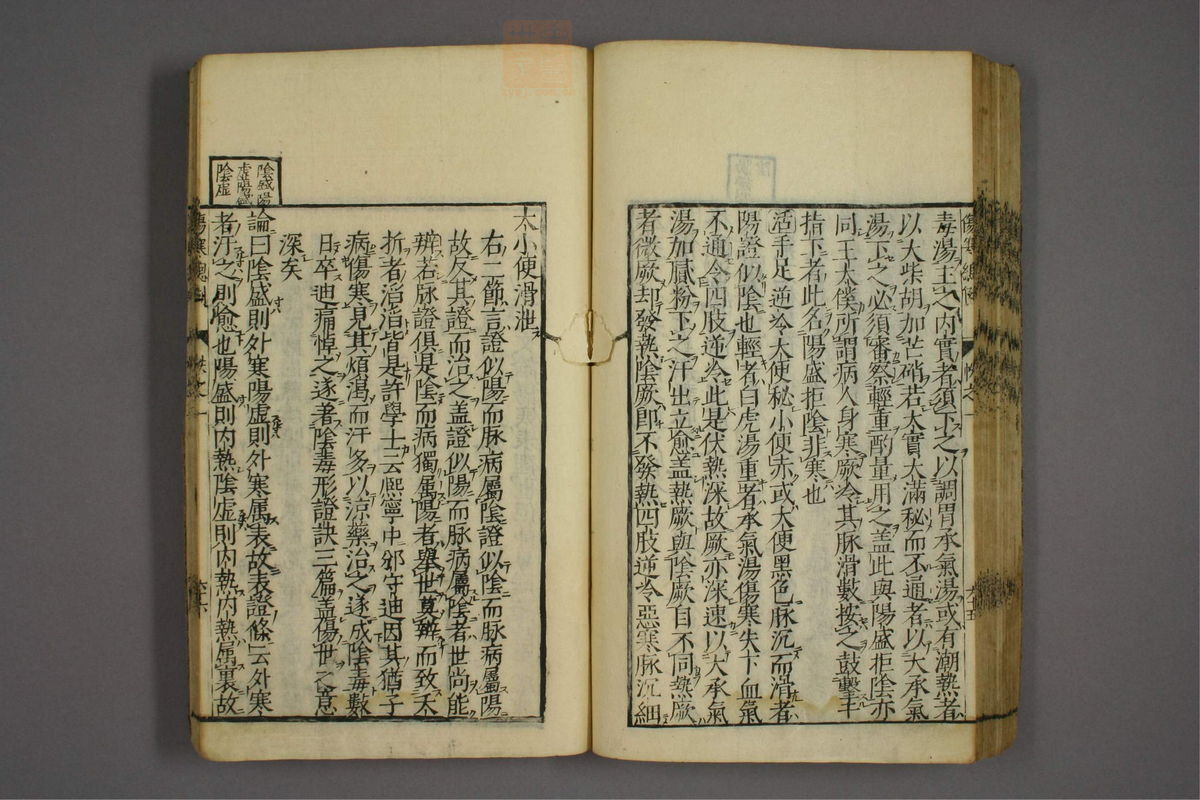 毒湯主之內實者須下之以調胃承氣湯或有潮熱者
以大柴胡加芒硝若大實大滿秘而不通者以大承氣
湯下之必須審察輕重酌量用之蓋此與陽盛拒陰亦
同王太僕所謂病人身寒厥冷其脉滑數按之鼓擊于
指下者此名陽盛拒陰非寒也
活手足逆冷大便秘小便赤或大便黑色脉沉而滑者
陽證似陰也輕者白虎湯重者承氣湯傷寒失下血氣
不通令四肢逆冷此是伏熱深故厥亦深速以大承氣
湯加膩粉下之汗出立愈蓋熱厥與陰厥自不同熱厥
者微厥却發熱陰厥即不發熱四肢逆冷惡寒脉沉細
大小便滑泄
右二節言證似陽而脉病屬陰證似陰而脉病屬陽
故反其證而治之蓋證似陽而脉病屬陰者世尚能
辨若脉證俱是陰而病獨屬陽者舉世莫辨而致夭
折者滔滔皆是許學士云熙寧中邠守迪因其猶子
病傷寒見其煩渴而汗多以涼藥治之遂成陰毒數
日卒迪痛悼之遂著陰毒形證訣三篇蓋傷世之意
深矣
陰盛陽
虛陽盛
陰虛
論曰陰盛則外寒陽虛則外寒屬表故表證條云外寒
者汗之則愈也陽盛則內熱陰虛則內熱內熱屬裏故